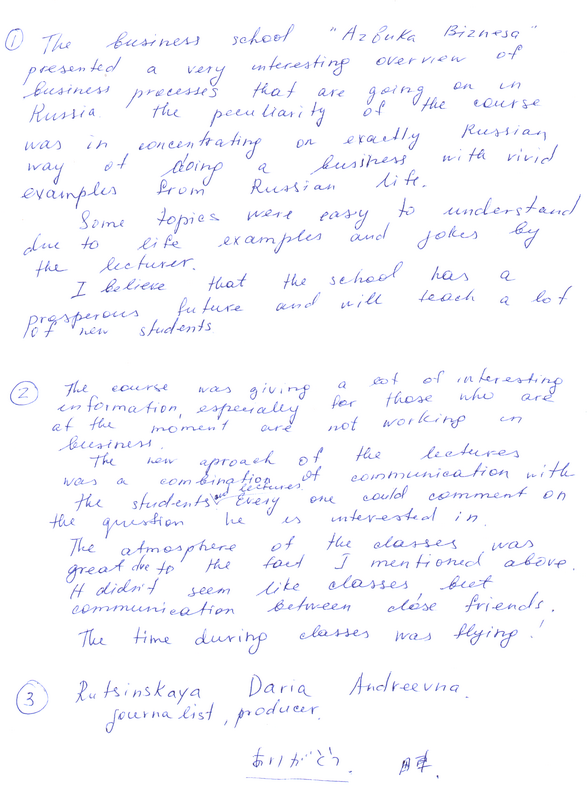 ① The business school "Azbuka Biznesa"
presented a very interesting overview of
business processes that are going on in
Russia. the peculiarity of the course
was in concentrating on exactly Russian
way of doing a business with vivid
examples from Russian life.
Some topics were easy to understand
due to life examples and jokes by
the lecturer.
I believe that the school has a
prosperous future and will teach a lot
of new students
② The course was giving a lot of interesting
information, especially for those who are
at the moment are not working in
business.
The new aproach of the lectures
was a combination of communication with
the students and lectures. Every one could comment on
the question he is interested in.
The atmosphere of the classes was
great due to the fact I mentioned above.
It didn't seem like classes but
communication between close friends.
The time during classes was flying!
③ Rutsinskaya Daria Andreevna.
journalist, producer.
ありがとう.